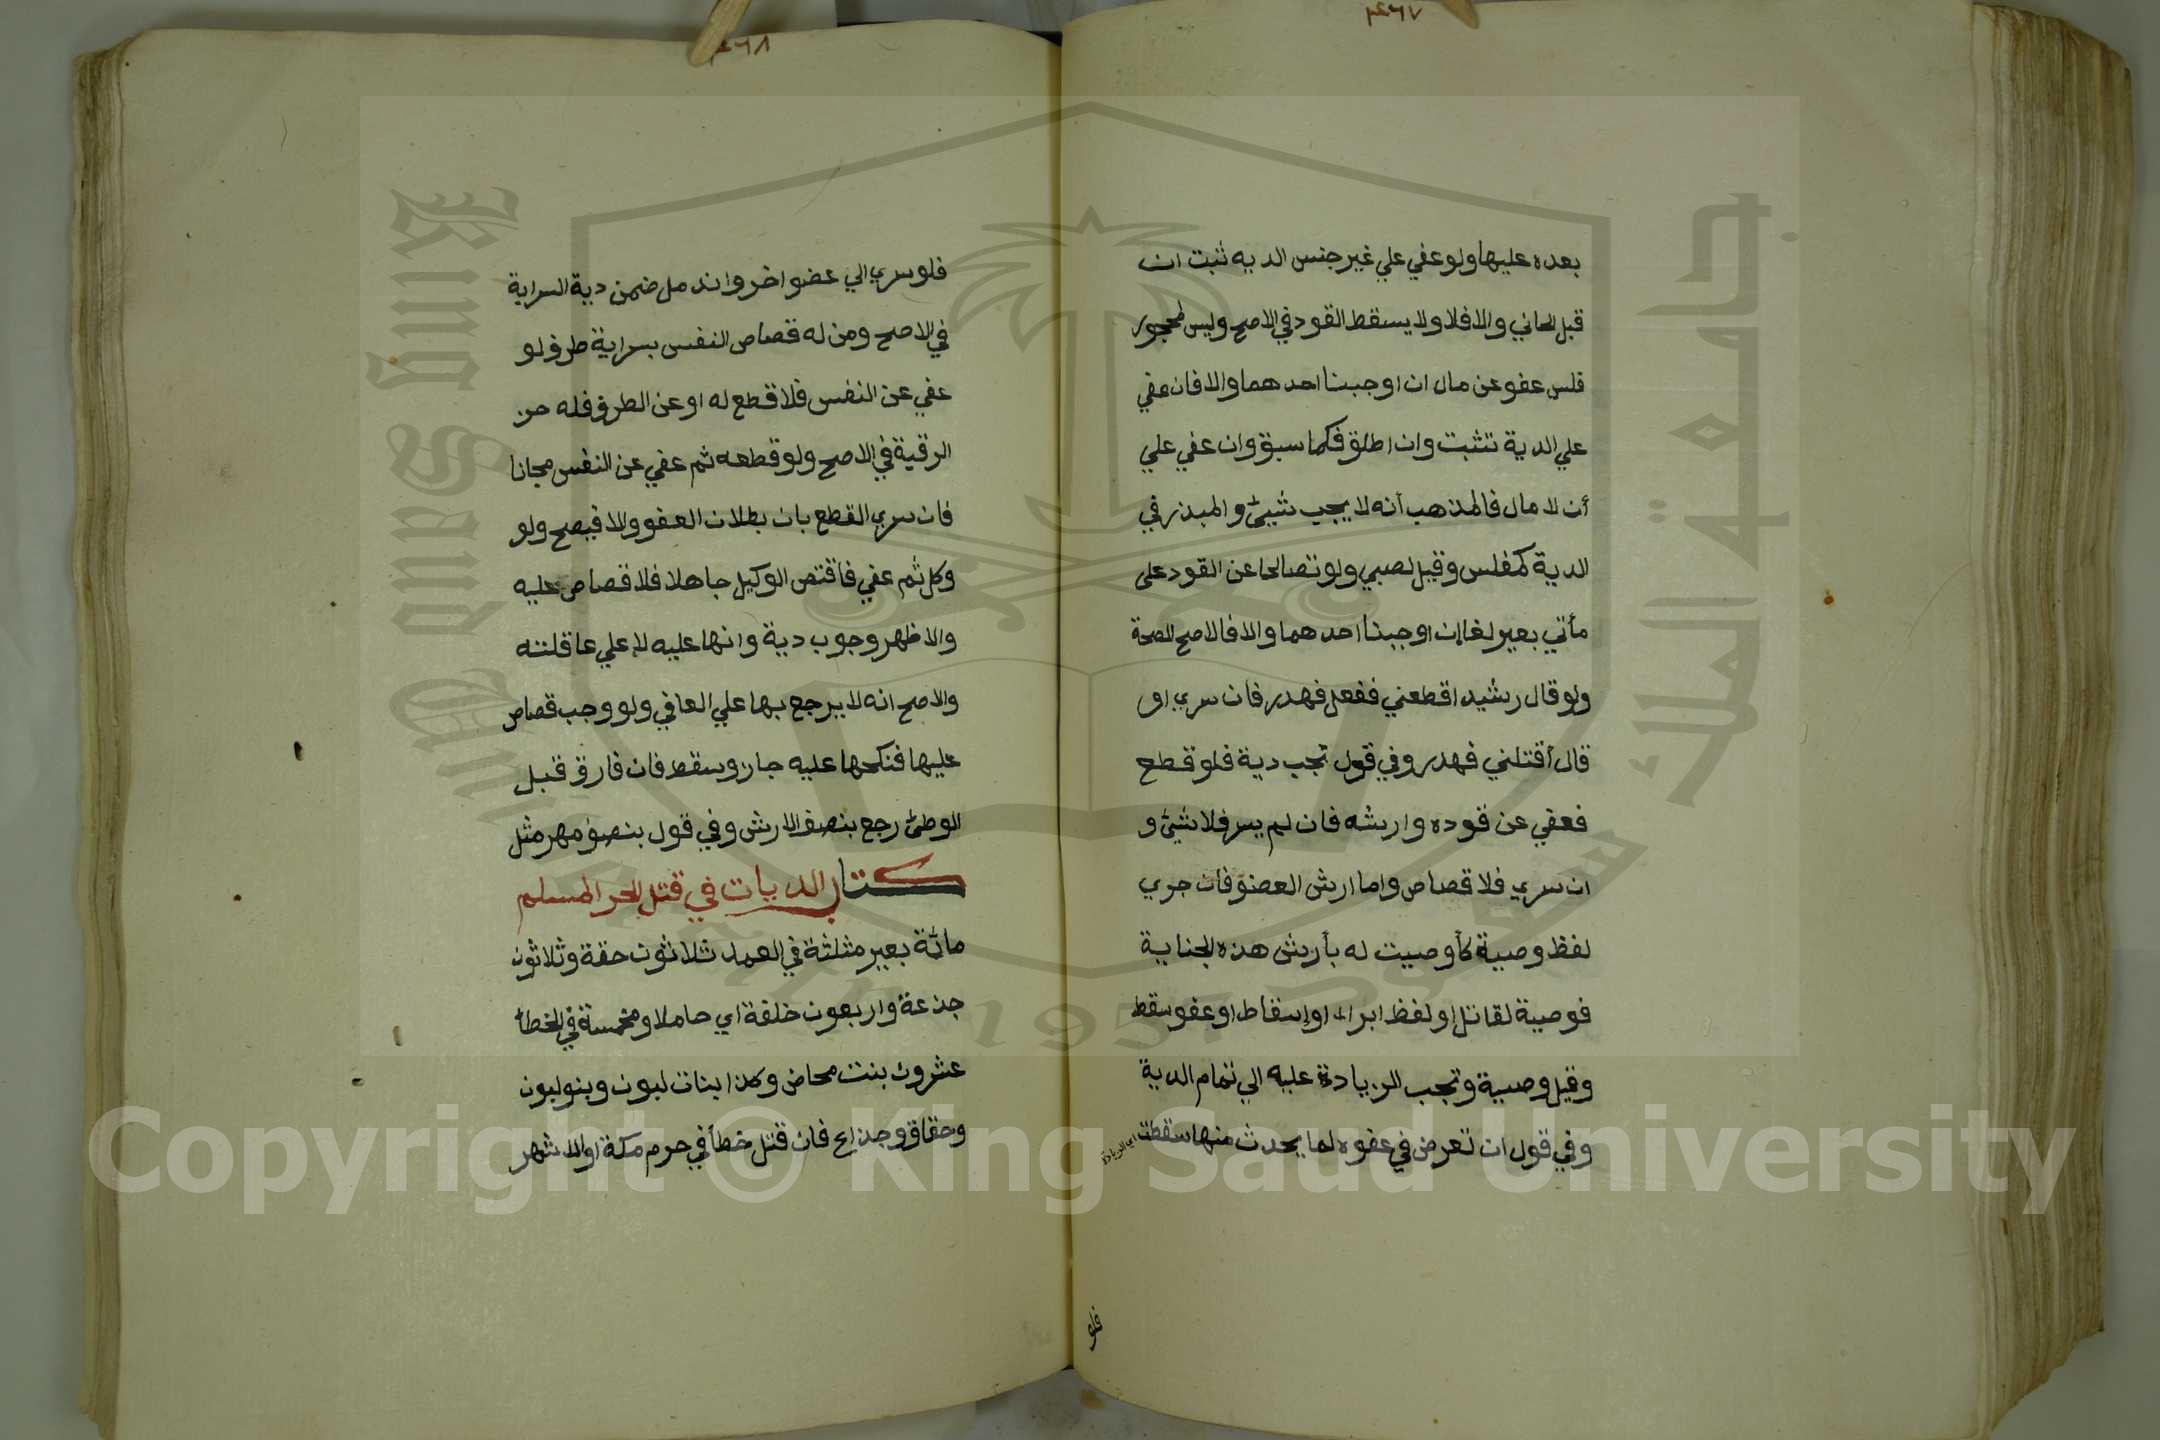 ٤٦٧
بعده عليها ولو عفي علي غير جنس الديه ثبت ان
قبل الجاني والا فلا ولا يسقط القود في الاصح وليس لمحجور
فلس عفو عن مال ان اوجبنا احدهما والا فان عفي
علي الدية تثبت وان اطلق فكما سبق وان عفي علي
أن لا مال فالمذهب أنه لا يجب شيئ والمبذر في
الدية كمفلس وقيل لصبي ولو تصالحا عن القود على
مأتي بعير لغا إن اوجبنا احدهما والا فالاصح الصحة
ولو قال رشيد اقطعني ففعل فهدر فان سري او
قال أقتلني فهدر وفي قول تجب دية فلو قطع
فعفي عن قوده وارشه فان لم يسر فلا شيئ و
ان سري فلا قصاص واما ارش العضو فان جري
لفظ وصية كأوصيت له بأرش هذه الجناية
فوصية لقاتل او لفظ ابراء او إسقاط او عفو سقط
وقيل وصية وتجب الزيادة عليه الي تمام الدية
وفي قول ان تعرض في عفوه لما يحدث منها سقطت اي الزيادة
فلو
٤٦٨
فلو سري الي عضو اخر واندمل ضمن دية السراية
في الاصح ومن له قصاص النفس بسراية طرف لو
عفي عن النفس فلا قطع له او عن الطرف فله حز
الرقبة في الاصح ولو قطعه ثم عفي عن النفس مجانا
فان سري القطع بان بطلان العفو والا فيصح ولو
وكل ثم عفي فاقتص الوكيل جاهلا فلا قصاص عليه
والاظهر وجوب دية وانها عليه لا علي عاقلته
والاصح انه لا يرجع بها علي العافي ولو وجب قصاص
عليها فنكحها عليه جاز وسقط فان فارق قبل
الوطئ رجع بنصف الارش وفي قول بنصف مهر مثل
كتاب الديات في قتل الحر المسلم
مائة بعير مثلثة في العمد ثلاثون حقة وثلاثون
جذعة واربعون خلفة اي حاملا ومخمسة في الخطأ
عشرون بنت مخاض وكذا بنات لبون وبنو لبون
وحقاق وجذاع فان قتل خطأ في حرم مكة او الاشهر
King Saud University
جامعة الملك سعود
1957
Copyright © King Saud University